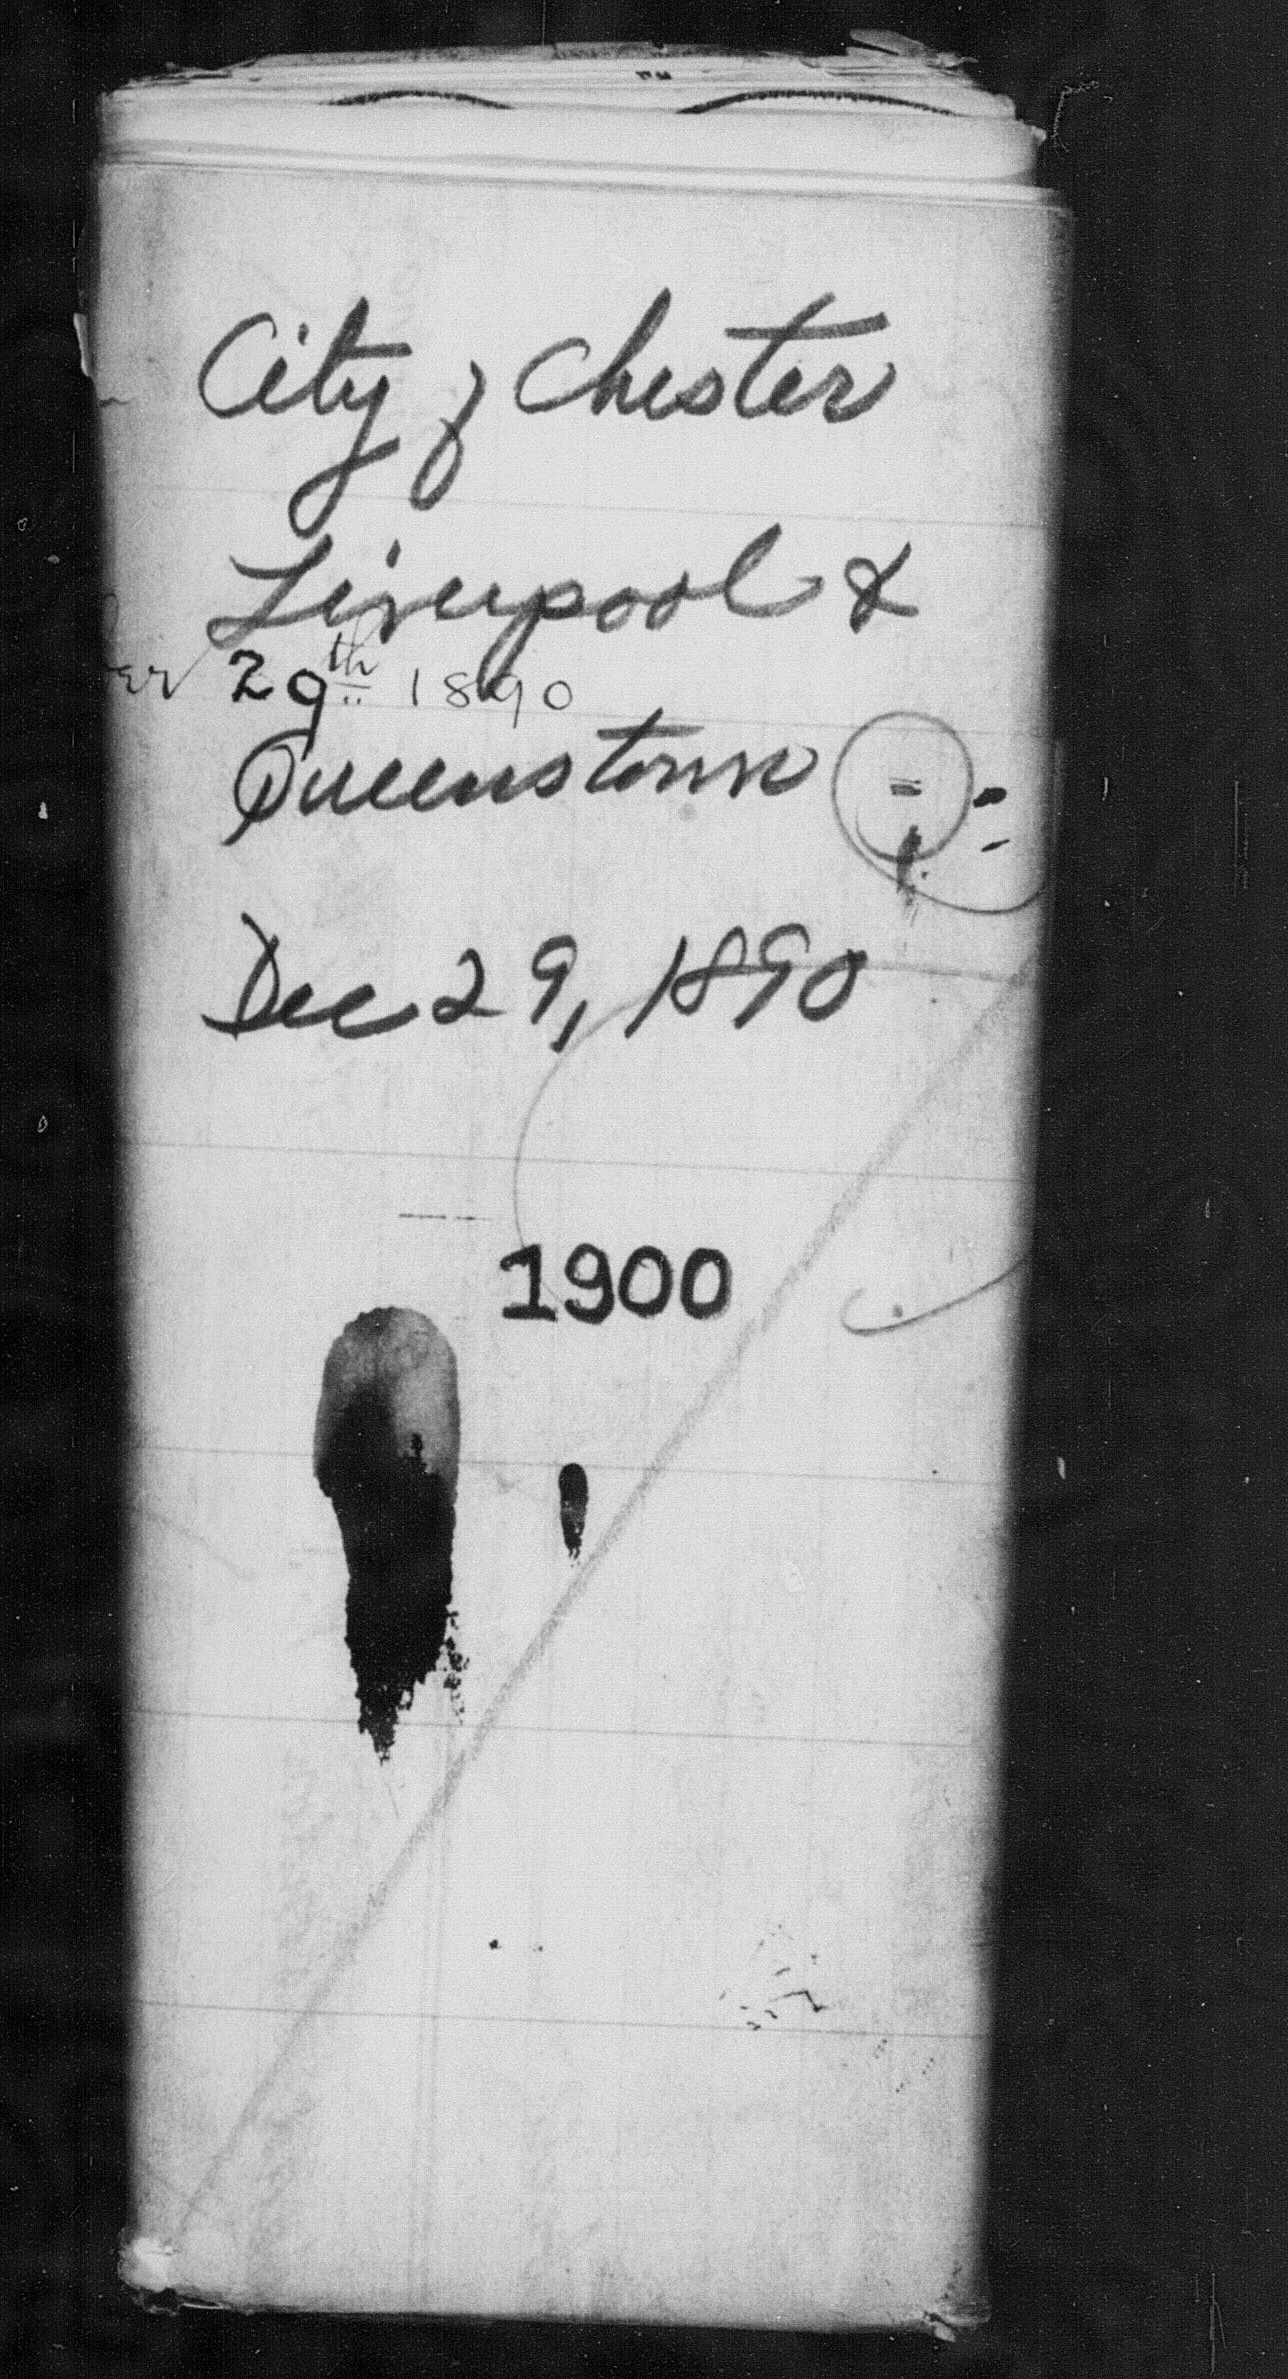 City of Chester
Liverpool &
29th 1890
Queenstown
Dec 29, 1890
1900